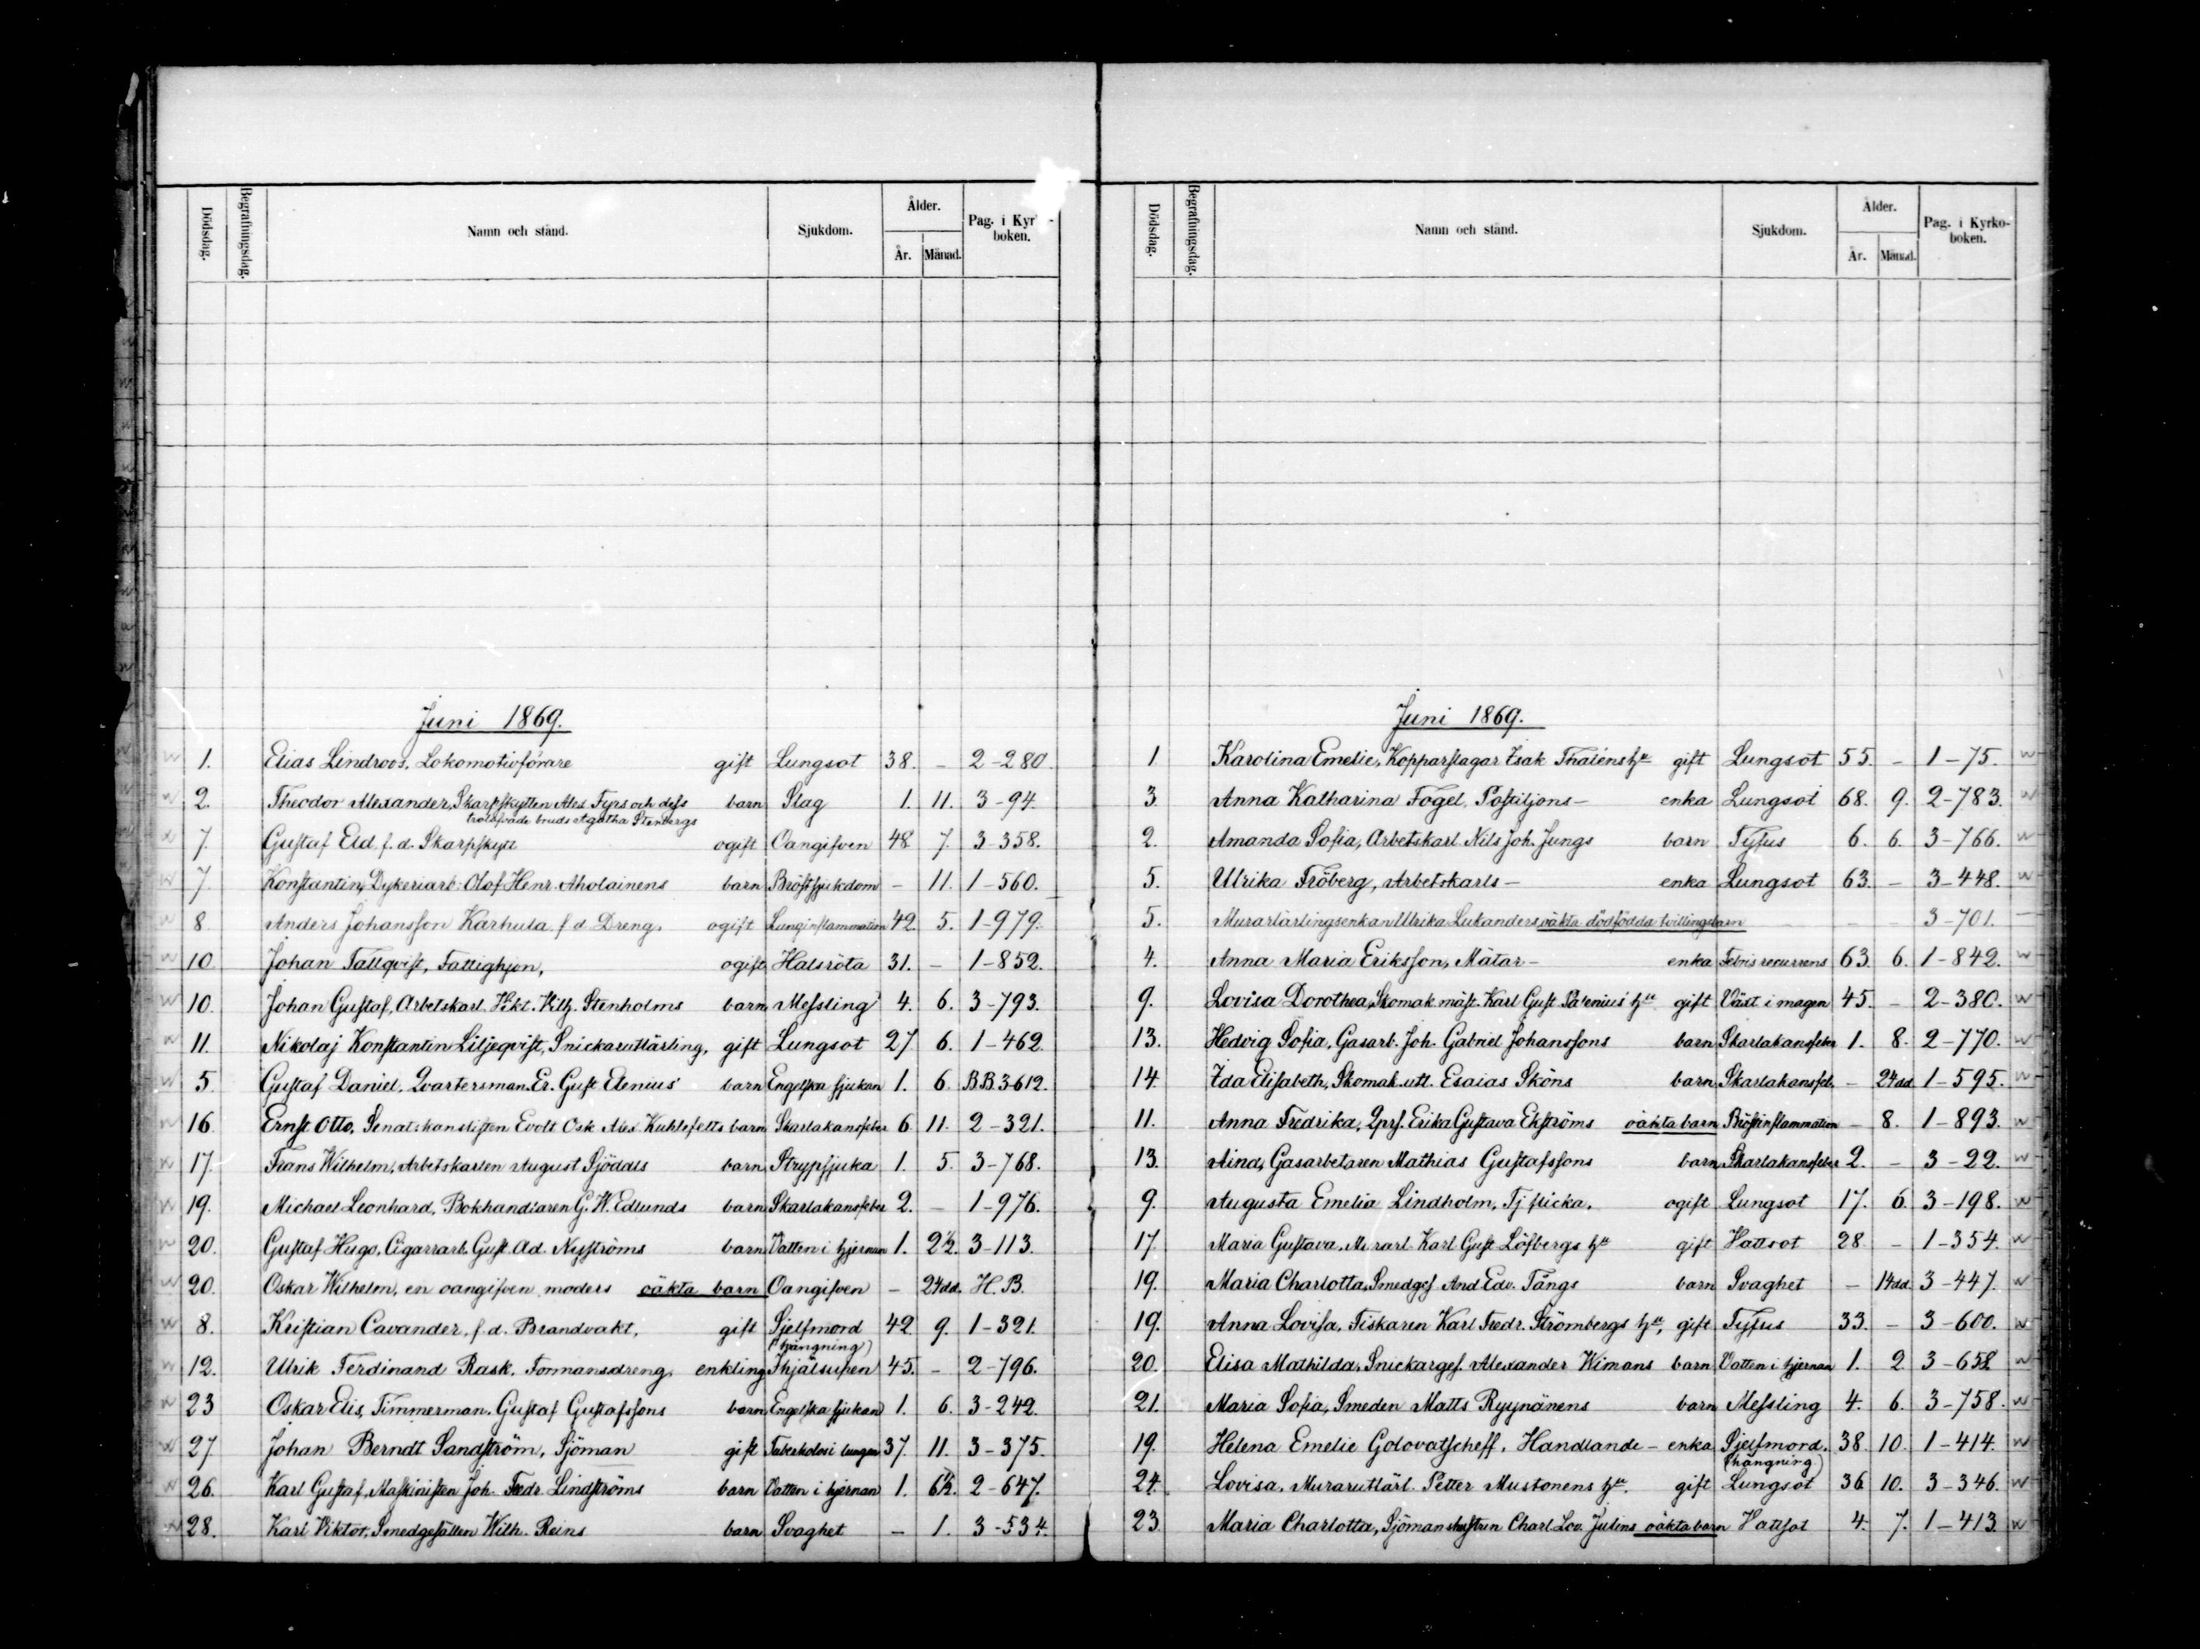 Dödsdag. Begrafningsdag. Namn och stånd. Sjukdom. Ålder. År. Månad. Pag. i Kyrkoboken.
Juni 1869.
1. Elias Lindroos, Lokomotivförare gift Lungsot 38. – 2-280.
2. Theodor Alexander, Skarpskytten Alex Fyrs och dess barn Slag 1. 11. 3-94.
trolofvade bruds Agatha Stenbergs
7. Gustaf Eld f. d. Skarpskytt ogift Oangifven 48 7. 3-358.
7 Konstantin, Dykeriarb: Olof Henr. Aholainens barn Bröstsjukdom – 11. 1-560.
8 Anders Johansson Karhula f d Dreng. ogift Lunginflammation 42. 5. 1-979.
10 Johan Tallqvist, Fattighjon, ogift Halsröta 31. – 1-852.
10. Johan Gustaf, Arbetskarl. Vikt. Vilh. Stenholms barn Messling 4. 6. 3-793.
11. Nikolaj Konstantin Liljeqvist, Snickarutlärling, gift Lungsot 27 6. 1-462.
5. Gustaf Daniel, Qvartersman Er. Gust Elenius' barn Engelska sjukan 1. 6. B.B. 3612.
16. Ernst Otto, Senatskanslisten Evolt Osk Alex. Kuhlefelts barn Skarlakansfeber 6. 11. 2-321.
17. Frans Wilhelm, Arbetskarlen August Sjöddis barn Strypsjuka 1. 5. 3-768.
19. Michael Leonhard, Bokhandlaren G. W. Edlunds barn Skarlakansfeber 2. – 1-976.
20. Gustaf Hugo, Cigarrarb. Gust. Ad. Nyströms barn Vatten i hjernan 1. 2½. 3-113.
20. Oskar Wilhelm, en oangifven moders oäkta barn Oangifven – 24 dd. H.B.
8. Kristian Cavander, f. d. Brandvakt, gift Sjelfmord 42 9. 1-321.
(hängning)
12. Ulrik Ferdinand Rask, Formansdreng, enkling Ihjälsupen 45. – 2-796.
23 Oskar Elis, Timmerman. Gustaf Gustafssons barn Engelska sjukan 1. 6. 3-242.
27. Johan Berndt Sandström, Sjöman gift Tuberkolosi lungan 37. 11. 3-375.
26. Karl Gustaf, Maskinisten Joh. Fredr. Lindströms barn Vatten i hjernan 1. 6½. 2-647.
28. Karl Viktor, Smedgesällen Wilh. Reins barn Svaghet – 1. 3-534.
Dödsdag. Begrafningsdag. Namn och stånd. Sjukdom. Ålder. År. Månad. Pag. i Kyrkoboken.
Juni 1869.
1 Karolina Emelie, Kopparslagar Isak Thaléns hu gift Lungsot 55. – 1-75.
3. Anna Katharina Fogel, Postiljons – enka Lungsot 68. 9. 2-783.
2. Amanda Sofia, Arbetskarl Nils Joh. Jungs barn Tyfus 6. 6. 3-766.
5. Ulrika Fröberg, Arbetskarls – enka Lungsot 63. – 3-448.
5. Murarlärlingsenkan Ulrika Lukanders oäkta dödfödda tvillingsbarn – – 3-701.
4. Anna Maria Eriksson, Mätar – enka Febris recurrens 63. 6. 1-842.
9. Lovisa Dorothea, Skomak. mäst. Karl Gust Palenius' hu gift Växt i magen 45. – 2-380.
13. Hedvig Sofia, Gasarb. Joh. Gabriel Johanssons barn Skarlakansfeber 1. 8. 2-770.
14. Ida Elisabeth, Skomak. utl. Esaias Sköns barn Skarlakansfeb. – 24 dd. 1-595.
11. Anna Fredrika, Qprs. Erika Gustava Ekströms oäkta barn Bröstinflammation – 8. 1-893.
13. Aina, Gasarbetaren Mathias Gustafssons barn Skarlakansfeber 2. – 3-22.
9. Augusta Emelia Lindholm, Tj flicka. ogift Lungsot 17. 6. 3-198.
17. Maria Gustava, Murarl. Karl Gust Löfbergs hu gift Hattsot 28 – 1-354.
19. Maria Charlotta, Smedges And Edv. Tångs barn Svaghet – 14 dd. 3-447.
19. Anna Lovisa, Fiskaren Karl Fredr. Strömbergs hu, gift Tyfus 33. – 3-600.
20. Elisa Mathilda, Snickarges. Alexander Wimans barn Vatten i hjernan 1. 2 3-658
21. Maria Sofia, Smeden Matts Ryynänens barn Messling 4. 6. 3-758.
19. Helena Emelie Golovatscheff, Handlande – enka Sjelfmord. 38. 10. 1-414.
(hängning)
24. Lovisa, Murarutlärl. Petter Mustonens hu. gift Lungsot 36 10. 3-346.
23. Maria Charlotta, Sjömanshustrun Charl. Lov. Julins oäkta barn Hattsot 4. 7. 1-413.